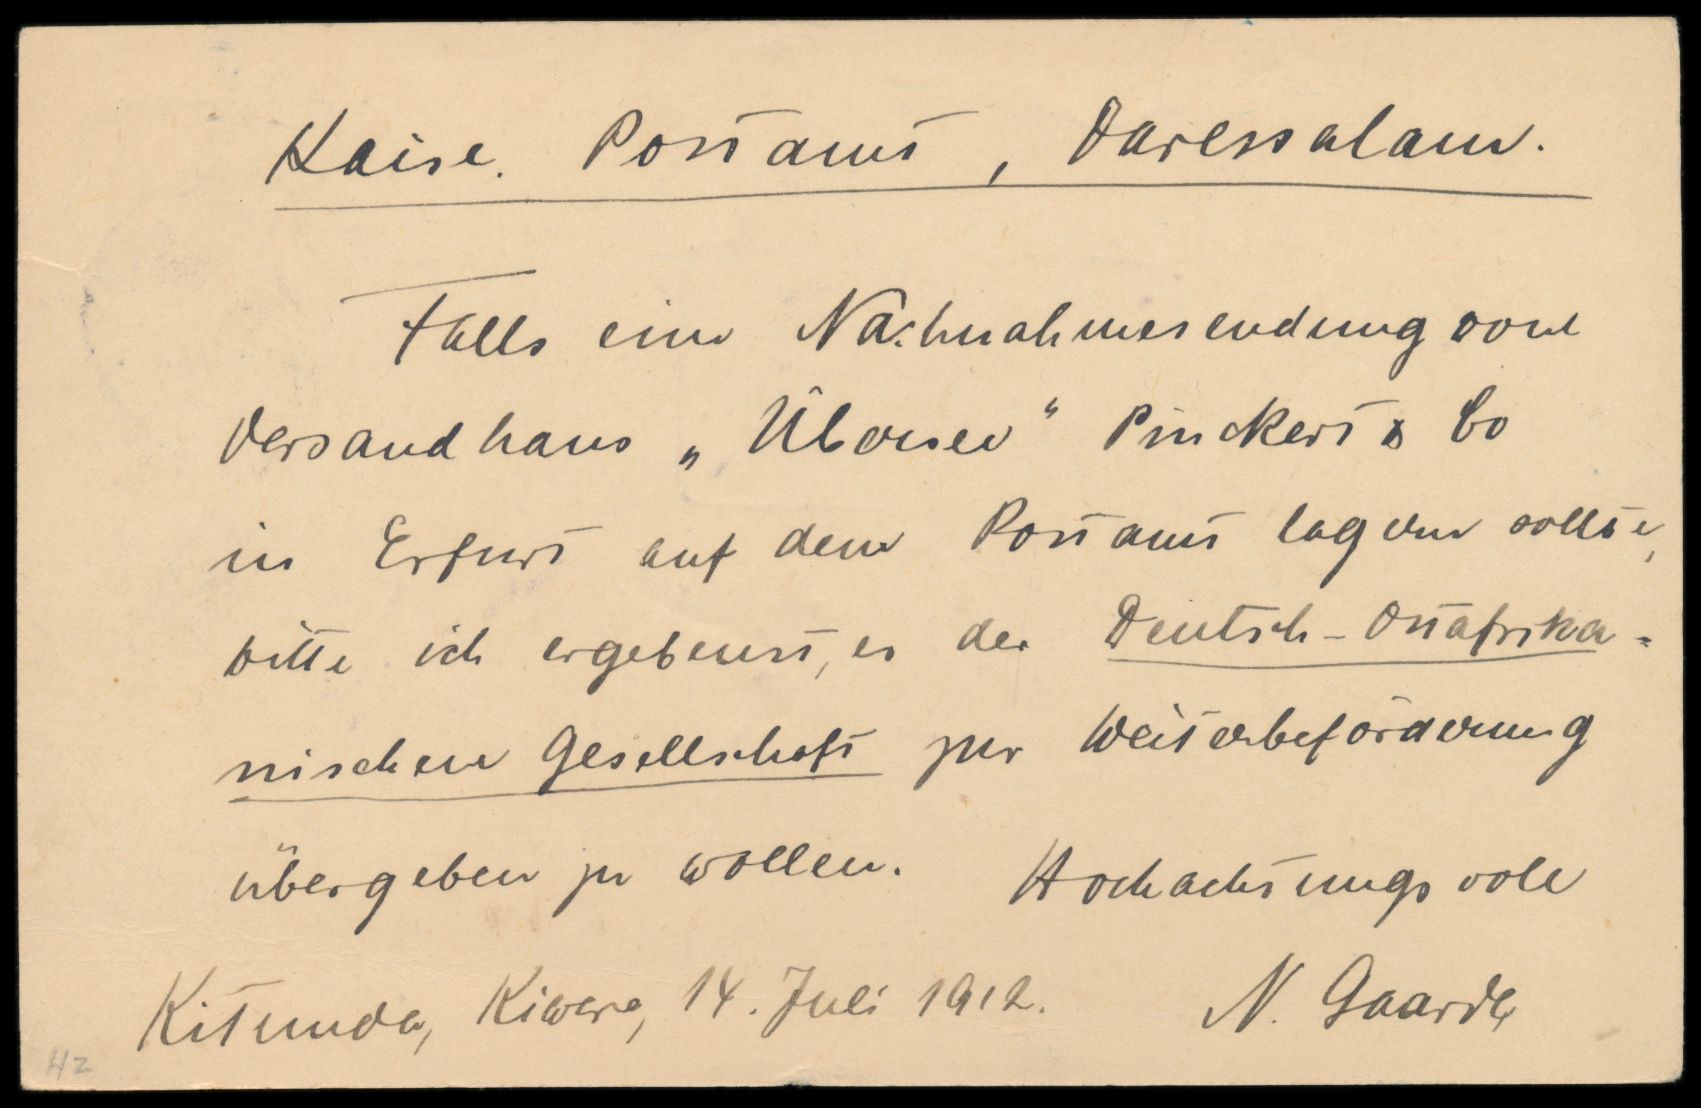 Kaise. Postamt, Daressalam.
Falls eine Nachnahmesendung vom
Versandhaus „Übersee“ Pinckert & Co
in Erfurt auf dem Postamt lagern sollte,
bitte ich ergebenst, es der Deutsch-Ostafrika-
nischen Gesellschaft zur Weiterbeförderung
übergeben zu wollen. Hochachtungsvoll
Kitunda, Kiwere, 14. Juli 1912. N. Gaarde
Hz